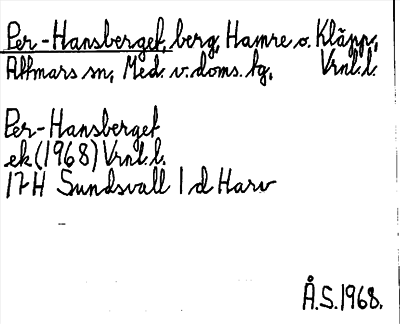 Per-Hansberget, berg, Hamre o. Kläpp,
Attmars sn, Med. v. doms. tg, Vrnl. l.
Per-Hansberget
ek (1968) Vrnl. l.
17H Sundsvall 1 d Harv
Å.S. 1968.